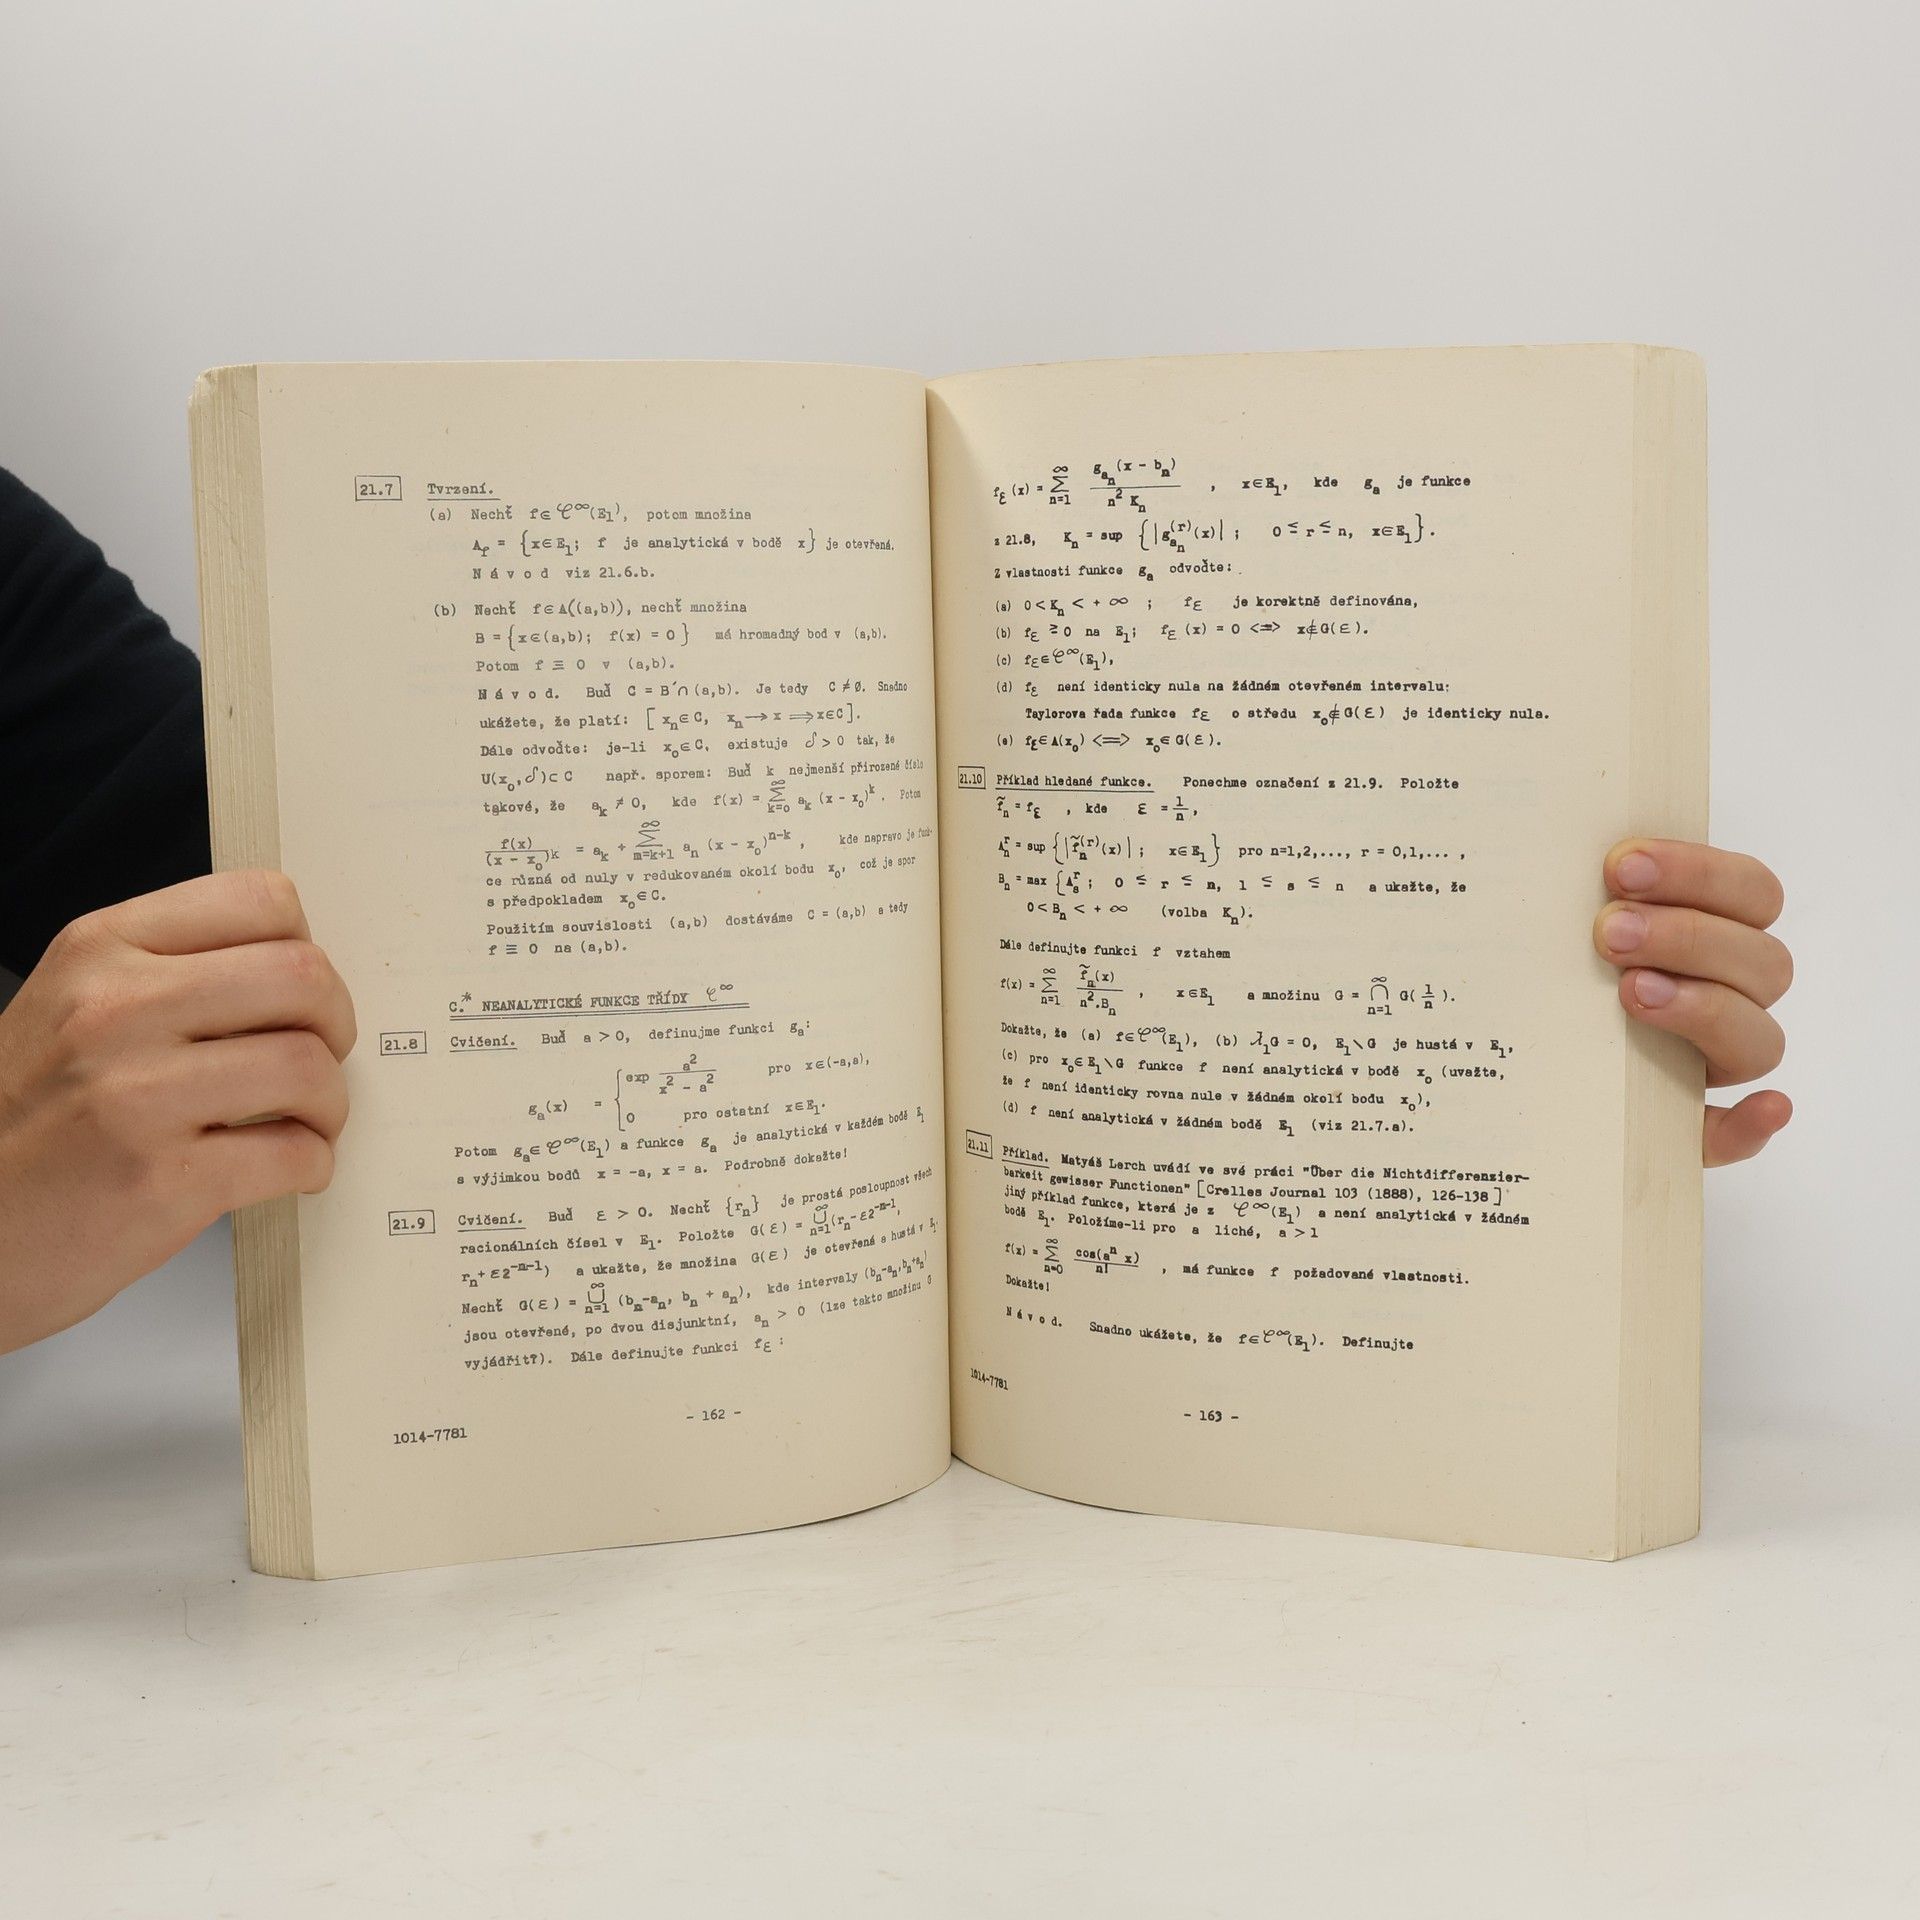 21.7 Tvrzení.
(a) Nechť f∈𝒞^∞(E₁), potom množina
A_f = {x∈E₁; f je analytická v bodě x} je otevřená.
N á v o d viz 21.6.b.
(b) Nechť f∈A((a,b)), nechť množina
B = {x∈(a,b); f(x) = 0} má hromadný bod v (a,b).
Potom f ≡ 0 v (a,b).
N á v o d. Buď C = B´∩(a,b). Je tedy C ≠ ∅. Snadno
ukážete, že platí: [x_n∈C, x_n→x ⟹ x∈C].
Dále odvoďte: je-li x_o∈C, existuje δ > 0 tak, že
U(x_o,δ)⊂C např. sporem: Buď k nejmenší přirozené číslo
takové, že a_k ≠ 0, kde f(x) = ∑_{k=0}^∞ a_k (x - x_o)^k. Potom
f(x)/(x - x_o)^k = a_k + ∑_{m=k+1}^∞ a_n (x - x_o)^{n-k}, kde napravo je funk-
ce různá od nuly v redukovaném okolí bodu x_o, což je spor
s předpokladem x_o∈C.
Použitím souvislosti (a,b) dostáváme C = (a,b) a tedy
f ≡ 0 na (a,b).
C.* NEANALYTICKÉ FUNKCE TŘÍDY 𝒞^∞
21.8 Cvičení. Buď a > 0, definujme funkci g_a:
g_a(x) = { exp a²/(x² - a²) pro x∈(-a,a),
0 pro ostatní x∈E₁.
Potom g_a∈𝒞^∞(E₁) a funkce g_a je analytická v každém bodě E₁
s výjimkou bodů x = -a, x = a. Podrobně dokažte!
21.9 Cvičení. Buď ε > 0. Nechť {r_n} je prostá posloupnost všech
racionálních čísel v E₁. Položte G(ε) = ⋃_{n=1}^∞(r_n-ε2^{-n-1},
r_n+ε2^{-n-1}) a ukažte, že množina G(ε) je otevřená a hustá v E₁.
Nechť G(ε) = ⋃_{n=1}^∞ (b_n-a_n, b_n + a_n), kde intervaly (b_n-a_n,b_n+a_n)
jsou otevřené, po dvou disjunktní, a_n > 0 (lze takto množinu G
vyjádřit?). Dále definujte funkci f_ε:
- 162 -
1014-7781
f_ε(x) = ∑_{n=1}^∞ g_{a_n}(x - b_n)/(n² K_n), x∈E₁, kde g_a je funkce
z 21.8, K_n = sup {|g_{a_n}^{(r)}(x)|; 0 ≤ r ≤ n, x∈E₁}.
Z vlastnosti funkce g_a odvoďte:
(a) 0 < K_n < + ∞ ; f_ε je korektně definována,
(b) f_ε ≥ 0 na E₁; f_ε(x) = 0 <=> x∉G(ε).
(c) f_ε∈𝒞^∞(E₁),
(d) f_ε není identicky nula na žádném otevřeném intervalu;
Taylorova řada funkce f_ε o středu x_o∉G(ε) je identicky nula.
(e) f_ε∈A(x_o) <=> x_o∈G(ε).
21.10 Příklad hledané funkce. Ponechme označení z 21.9. Položte
f̃_n = f_ε , kde ε = 1/n,
A_n^r = sup {|f̃_n^{(r)}(x)|; x∈E₁} pro n=1,2,..., r = 0,1,... ,
B_n = max {A_s^r; 0 ≤ r ≤ n, 1 ≤ s ≤ n a ukažte, že
0 < B_n < + ∞ (volba K_n).
Dále definujte funkci f vztahem
f(x) = ∑_{n=1}^∞ f̃_n(x)/(n².B_n) , x∈E₁ a množinu G = ⋂_{n=1}^∞ G(1/n).
Dokažte, že (a) f∈𝒞^∞(E₁), (b) λ₁G = 0, E₁∖G je hustá v E₁,
(c) pro x_o∈E₁∖G funkce f není analytická v bodě x_o (uvažte,
že f není identicky rovna nule v žádném okolí bodu x_o),
(d) f není analytická v žádném bodě E₁ (viz 21.7.a).
21.11 Příklad. Matyáš Lerch uvádí ve své práci "Über die Nichtdifferenzier-
barkeit gewisser Functionen" [Crelles Journal 103 (1888), 126-138]
jiný příklad funkce, která je z 𝒞^∞(E₁) a není analytická v žádném
bodě E₁. Položíme-li pro a liché, a > 1
f(x) = ∑_{n=0}^∞ cos(a^n x)/n! , má funkce f požadované vlastnosti.
Dokažte!
N á v o d. Snadno ukážete, že f∈𝒞^∞(E₁). Definujte
1014-7781
- 163 -